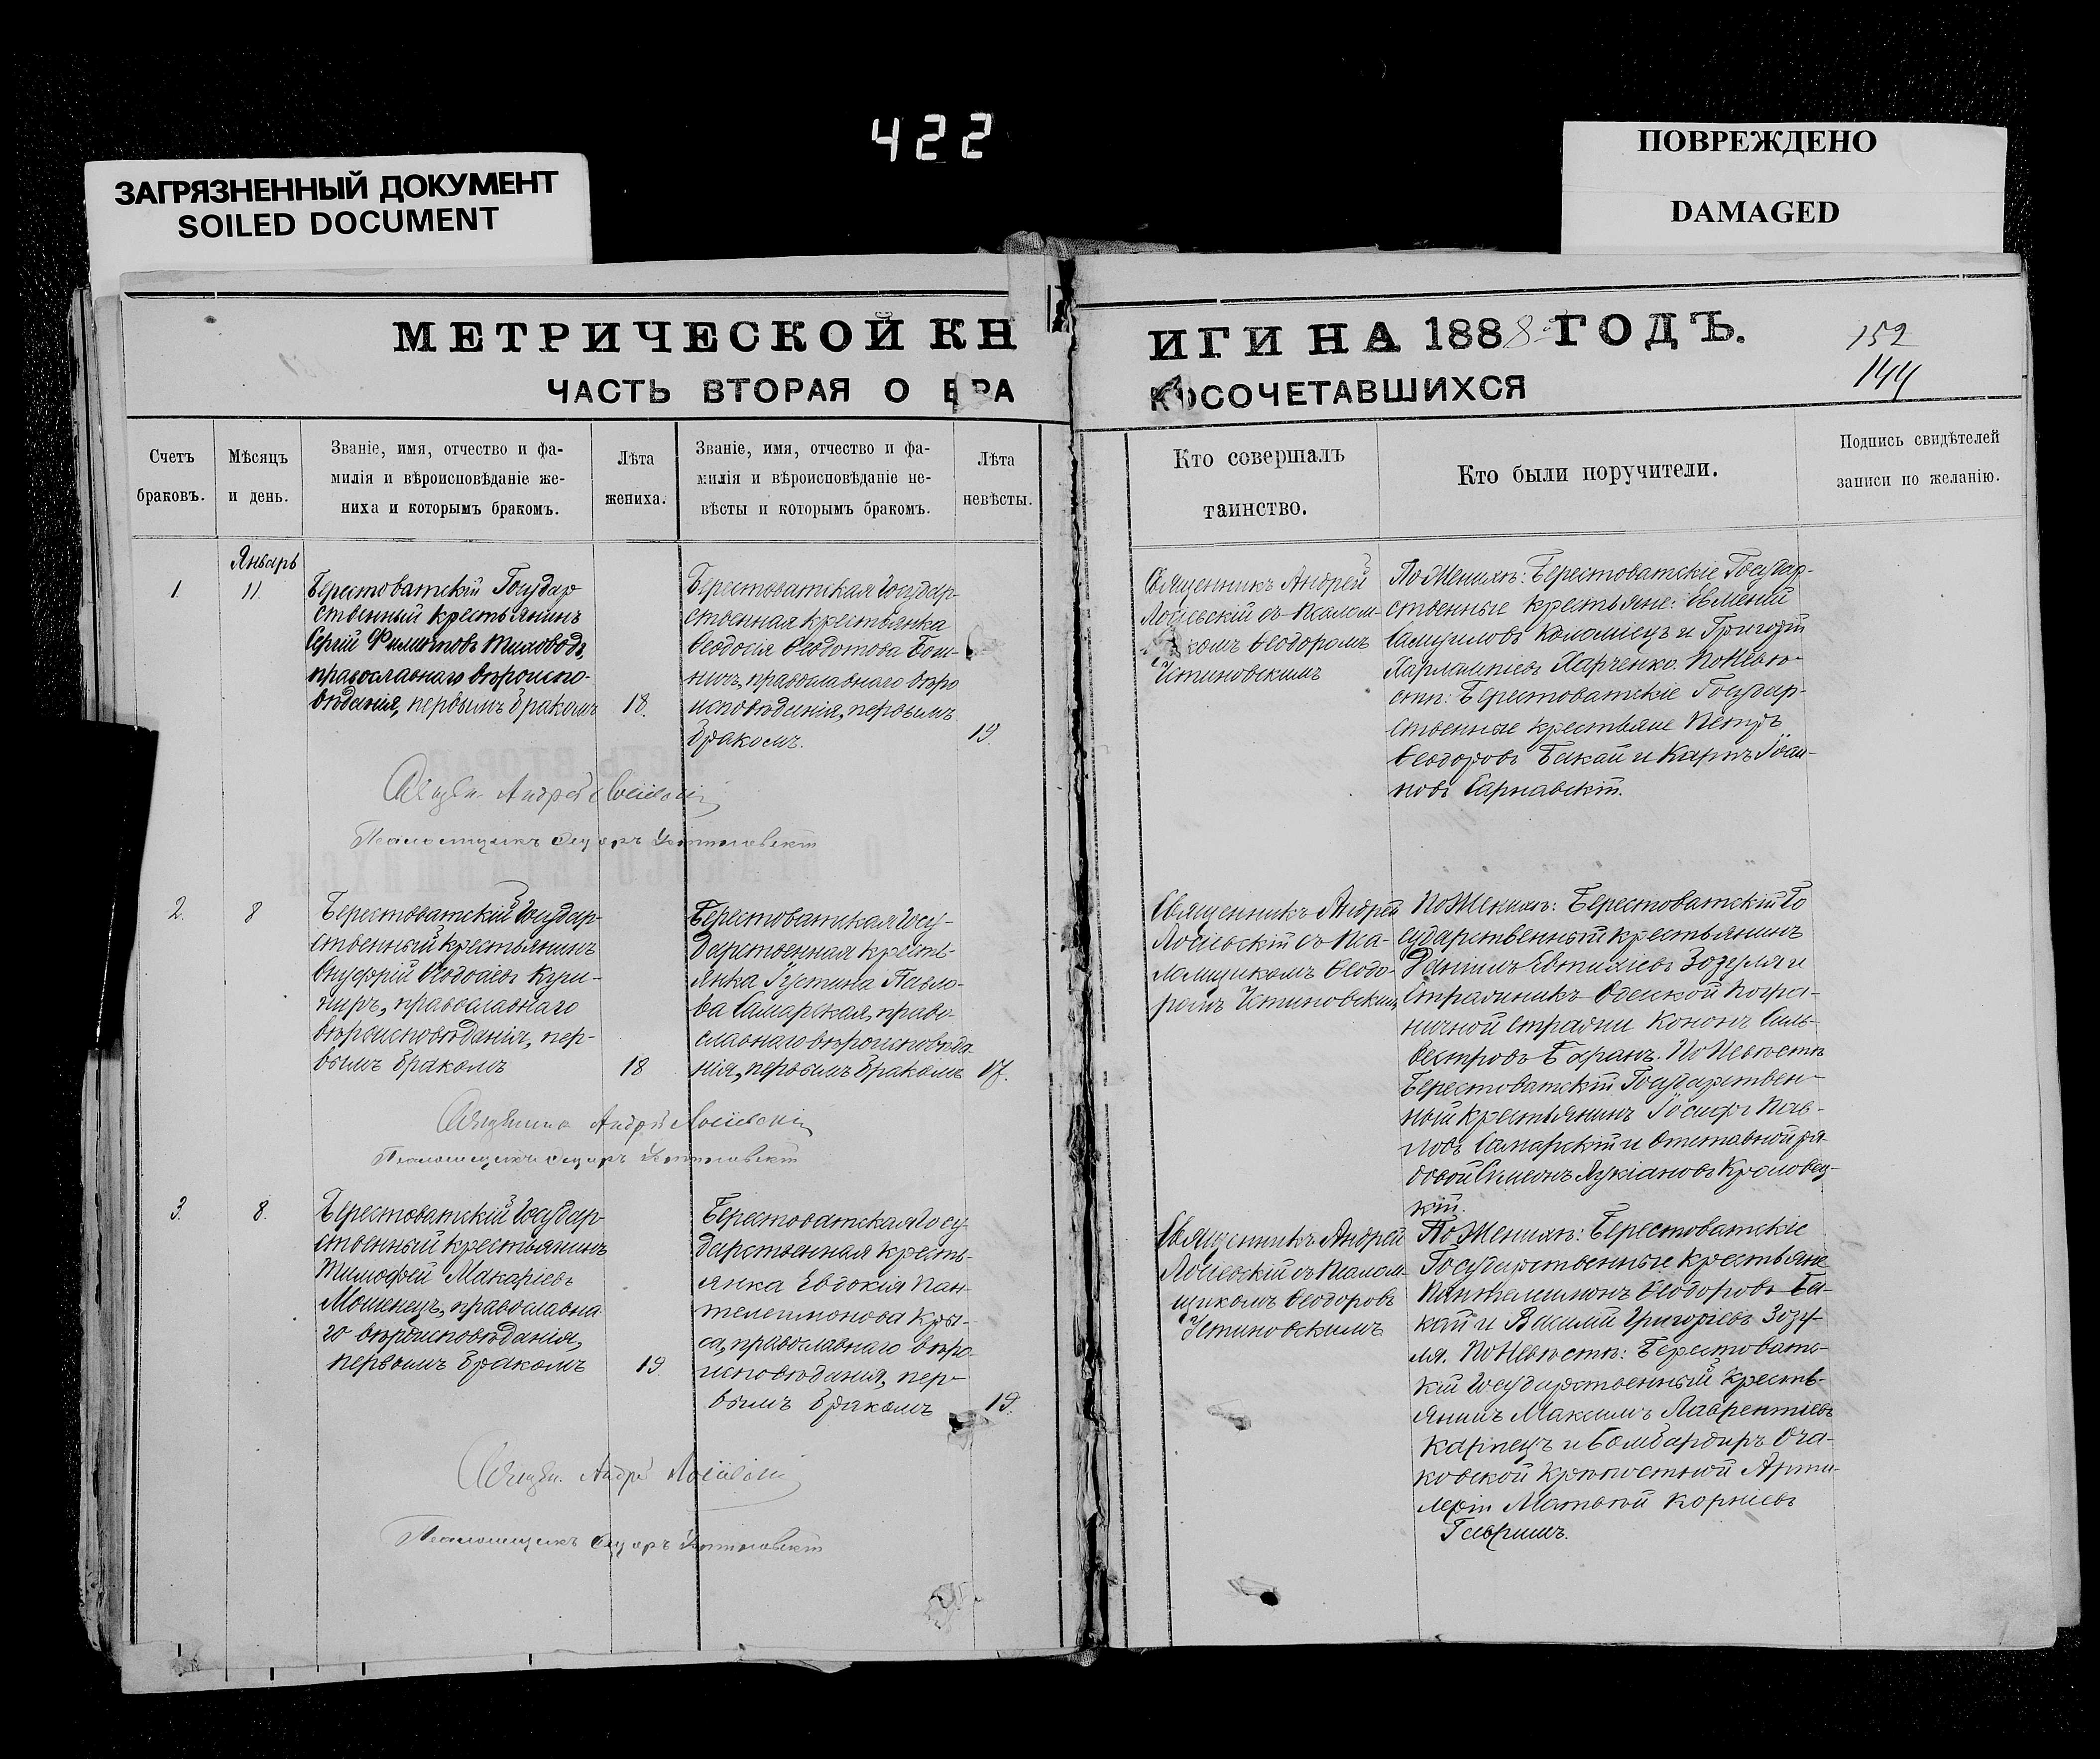 422
ЗАГРЯЗНЕННЫЙ ДОКУМЕНТ
SOILED DOCUMENT
ПОВРЕЖДЕНО
DAMAGED
МЕТРИЧЕСКОЙ КН
ИГИ НА 1888 ГОДЪ.
152
144
ЧАСТЬ ВТОРАЯ О БРА
КОСОЧЕТАВШИХСЯ
Счетъ
браковъ.
Мѣсяцъ
и день.
Званіе, имя, отчество и фа-
милія и вѣроисповѣданіе же-
ниха и которымъ бракомъ.
Лѣта
жениха.
Званіе, имя, отчество и фа-
милія и вѣроисповѣданіе не-
вѣсты и которымъ бракомъ.
Лѣта
невѣсты.
Кто совершалъ
таинство.
Кто были поручители.
Подпись свидѣтелей
записи по желанію.
Январь
1.
11
Берестоватскій Государ
ственный крестьянинъ
Сергій Филиповъ Тиховодъ,
православнаго вѣроиспо-
вѣданія, первымъ бракомъ
18.
Берестоватская Государ-
ственная крестьянка
Ѳеодосія Ѳеодотова Бон-
православнаго вѣро
исповѣданія, первымъ
бракомъ.
19.
Священникъ Андрей
Лосіевскій съ Псалом-
комъ Ѳеодоромъ
Устиновскимъ
По Женихѣ: Берестоватскіе Государ-
ственные крестьяне: Евменій
Самуиловъ Коломіецъ и Григорій
Харлампіевъ Харченко. По Невѣ-
стѣ: Берестоватскіе Государ-
ственные крестьяне Петръ
Ѳеодоровъ Бакай и Карпъ Іоан-
новъ Сарнавскій.
Священ. Андрей Лосіевскій
Псаломщикъ Ѳеодоръ Устиновскій
2.
8
Берестоватскій Государ-
ственный крестьянинъ
Онуфрій Ѳеодосіевъ Кути-
православнаго
вѣроисповѣданія, пер-
вымъ бракомъ
18
Берестоватская Госу-
дарственная кресть-
янка Іустина Павло-
ва Самарская, право-
славнаго вѣроисповѣда-
нія, первымъ бракомъ
17.
Священникъ Андрей
Лосіевскій съ Пса-
ломщикомъ Ѳеодо-
ромъ Устиновскимъ
По Женихѣ: Берестоватскій Го
сударственный крестьянинъ
Даніилъ Евтихіевъ Зозуля и
Стражникъ Одесской Погра-
ничной стражи Кононъ Силь-
вестровъ Баранъ. По Невѣстѣ
Берестоватскій Государствен-
ный крестьянинъ Іосифъ Пав-
ловъ Самарскій и отставной ря-
довой Симеонъ Лукіановъ Кролевец-
кій.
Священникъ Андрей Лосіевскій
Псаломщикъ Ѳеодоръ Устиновскій
3.
8.
Берестоватскій Государ
ственный крестьянинъ
Тимофей Макаріевъ
Мошенецъ, православна
го вѣроисповѣданія,
первымъ бракомъ
19.
Берестоватская Госу
дарственная кресть-
янка Евдокія Пан-
телеимонова Кры-
са, православнаго вѣро-
исповѣданія, пер-
вымъ бракомъ
19.
Священникъ Андрей
Лосіевскій съ Псалом-
щикомъ Ѳеодоровъ
Устиновскимъ
По Женихѣ: Берестоватскіе
Государственные крестьяне
Пантелимонъ Ѳеодоровъ Ба-
кай и Василій Григоріевъ Зозу-
ля. По Невѣстѣ: Берестоватс-
кій Государственный кресть-
янинъ Максимъ Лаврентіевъ
Карпецъ и Бомбардиръ Оча-
ковской крѣпостной Арти-
леріи Матвѣй Корніевъ
Гавришъ.
Священ. Андрей Лосіевскій
Псаломщикъ Ѳеодоръ Устиновскій